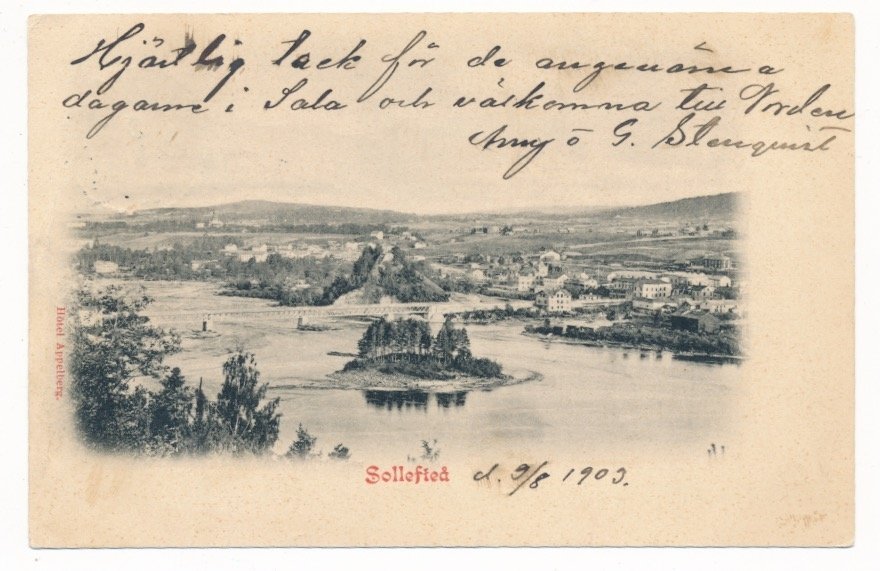 Hjärtlig tack för de angenäma
dagarne i Sala och välkomna till Norden
Amy o G. Stenquist
Hôtel Appelberg.
Sollefteå d. 9/8 1903.